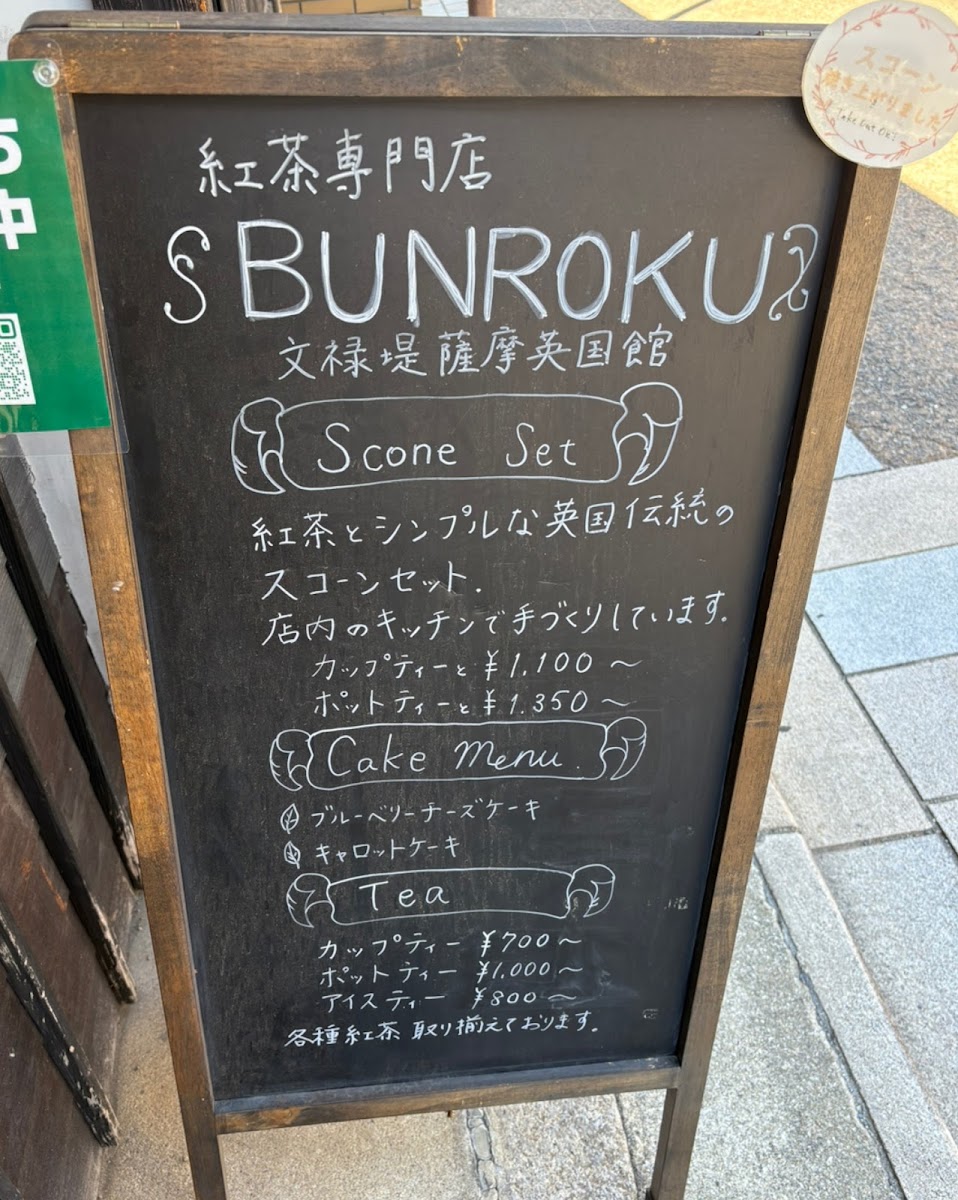 スコーン
焼き上がりました
Take Out OK!
紅茶専門店
BUNROKU
文禄堤薩摩英国館
Scone Set
紅茶とシンプルな英国伝統の
スコーンセット.
店内のキッチンで手づくりしています.
カップティーと ¥1.100 〜
ポットティーと ¥1.350 〜
Cake Menu.
ブルーベリーチーズケーキ
キャロットケーキ
Tea
カップティー ¥700〜
ポットティー ¥1.000〜
アイスティー ¥800〜
各種紅茶 取り揃えております.
中